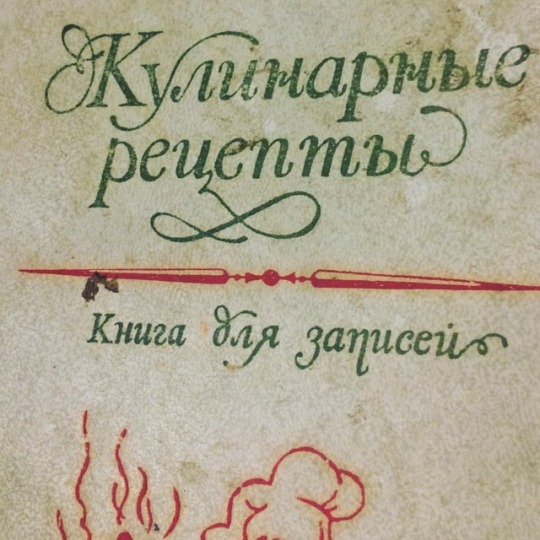 Кулинарные
рецепты
Книга для записей